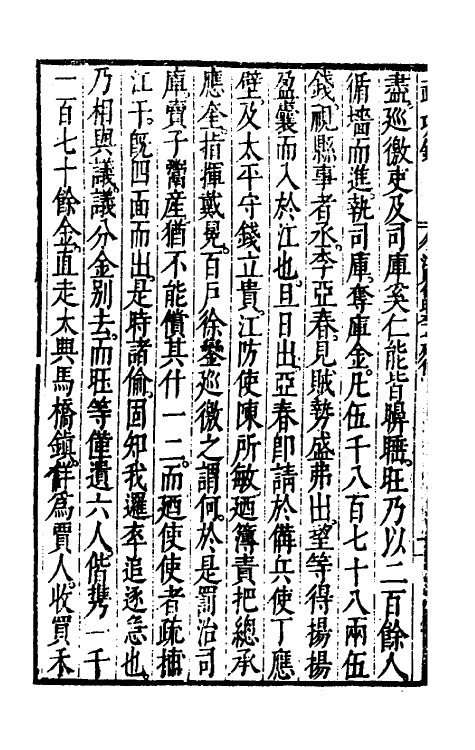 盡。巡徼吏及司庫奚仁能皆騈睡。旺乃以二百餘人
循墻而進。執司庫。奪庫金。凡伍千八百七十八兩伍
錢。視縣事者丞。李亞春見賊勢盛弗出。望等得揚揚
盈囊而入於江也。旦日出。亞春卽請於備兵使丁應
壁。及太平守錢立貴。江防使陳所敏廼簿責把總承
應奎。指揮戴晃。百戶徐鑾巡徼之謂何。於是罰治司
庫。賣子鬻産。猶不能償其什一二。而廼使使者疏捕
江干。旣四面而出。是時諸偷。固知我邏卒追逐急也。
乃相與議。議分金別去。而旺等僅遺六人。偕携一千
一百七十餘金。直走太興馬橋鎭。佯爲賈人。收買禾